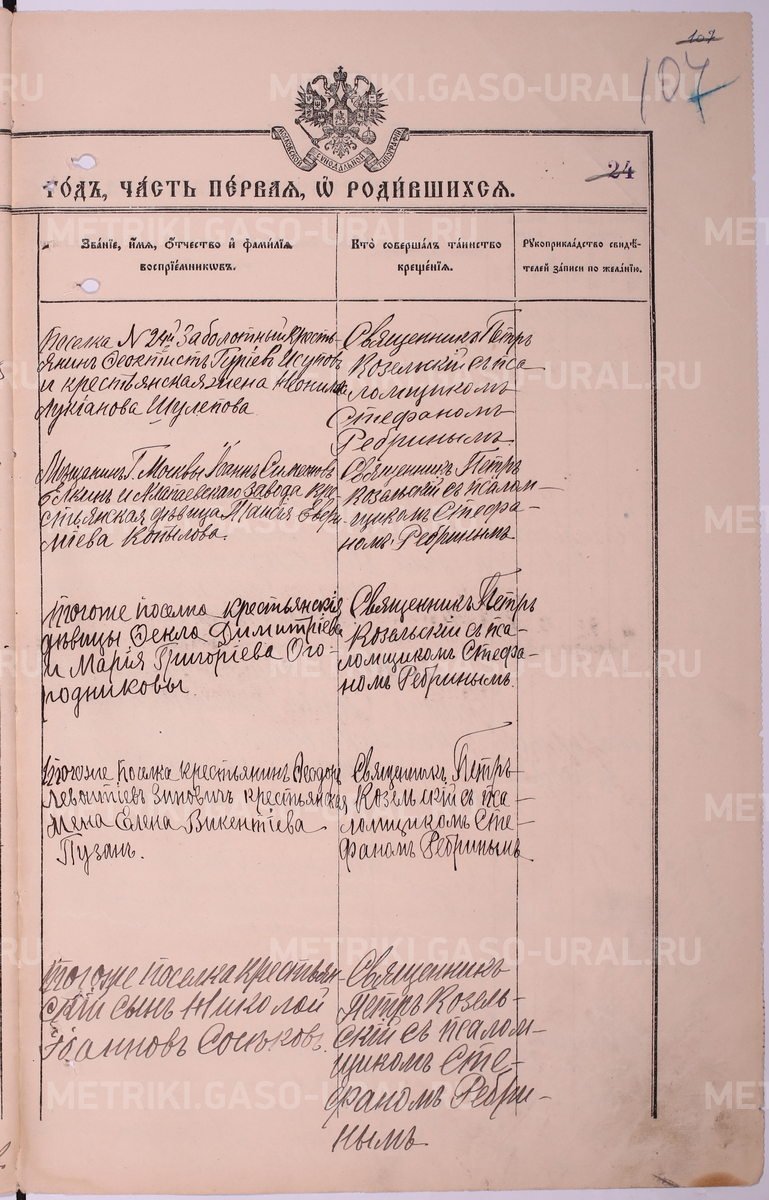 107
107
МОСКОВСКОЙ СѴНОДАЛЬНОЙ ТИПОГРАФІИ
24
го́дъ, ча́сть пе́рвая, ѡ҆ роди́вшихсѧ.
Зва́нїе, и҆́мѧ, ѻ҆́тчество и҆ фами́лїѧ
воспрїе́мникѡвъ.
Кто̀ соверша́лъ та́инство
креще́нїѧ.
Рꙋкоприкла́дство свидѣ́-
телей за́писи по жела́нїю.
Поселка N 24й Заболотный кресть-
янинъ Феоктистъ Гуріевъ Исуповъ
и крестьянская жена Неонила
Лукіанова Шулепова
Священникъ Петръ
Козельскій съ пса
ломщикомъ
Стефаномъ
Ребринымъ
Мѣщанинъ Г. Москвы Іоаннъ Симеоновъ
Елкинъ и Алапаевскаго Завода кре-
стьянская дѣвица Таисія Евфи
міева Копылова.
Священникъ Петръ
Козельскій съ псалом-
щикомъ Стефа-
номъ Ребринымъ
Тогоже поселка крестьянскія
дѣвицы Фекла Димитріева
и Марія Григоріева Ого-
родниковы
Священникъ Петръ
Козельскій съ пса-
ломщикомъ Стефа-
номъ Ребринымъ.
Тогоже поселка крестьянинъ Феодоръ
Левонтіевъ Зиновичъ крестьянская
жена Елена Викентіева
Пузанъ.
Священникъ Петръ
Козельскій съ пса-
ломщикомъ Сте-
фаномъ Ребринымъ
Тогоже поселка крестьян-
скій сынъ Николай
Іоанновъ Сосюковъ.
Священникъ
Петръ Козель-
скій съ псалом-
щикомъ Сте-
фаномъ Ребри-
нымъ
METRIKI.GASO-URAL.RU